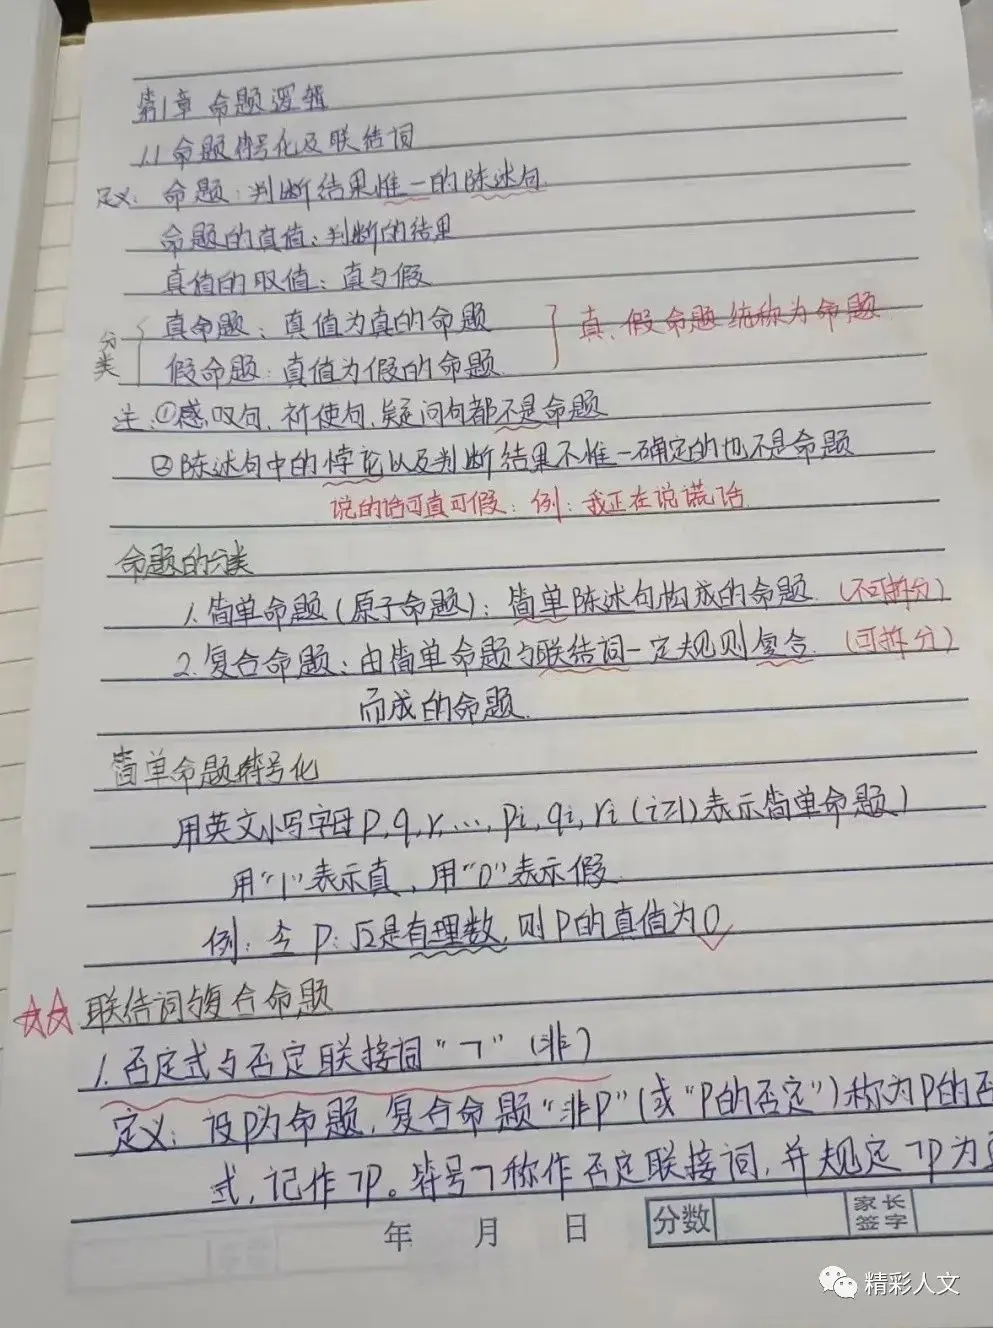 第1章 命题逻辑
1.1 命题符号化及联结词
定义: 命题:判断结果惟一的陈述句
命题的真值:判断的结果
真值的取值:真与假
分类 真命题:真值为真的命题
假命题:真值为假的命题
真、假命题统称为命题
注:①感叹句、祈使句、疑问句都不是命题
②陈述句中的悖论以及判断结果不惟一确定的也不是命题
说的话可真可假:例:我正在说谎话
命题的分类
1.简单命题(原子命题):简单陈述句构成的命题 (不可拆分)
2.复合命题:由简单命题与联结词一定规则复合 (可拆分)
而成的命题.
简单命题符号化
用英文小写字母p,q,r,…,pi,qi,ri(i≥1)表示简单命题)
用"1"表示真,用"0"表示假
例:令 p:√2是有理数,则p的真值为0
☆☆联结词与复合命题
1.否定式与否定联接词"¬"(非)
定义:设p为命题,复合命题"非p"(或"p的否定")称为p的否
式,记作¬p。符号¬称作否定联接词,并规定¬p为
年 月 日 分数 家长签字
精彩人文